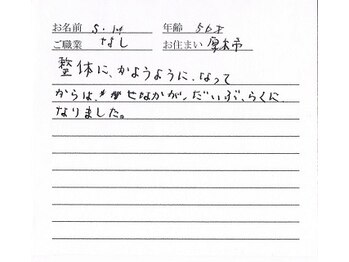 お名前 S.M 年齢 56才
ご職業 なし お住まい 厚木市
整体に、かようように、なって
からは、せなかが、だいぶ、らくに
なりました。